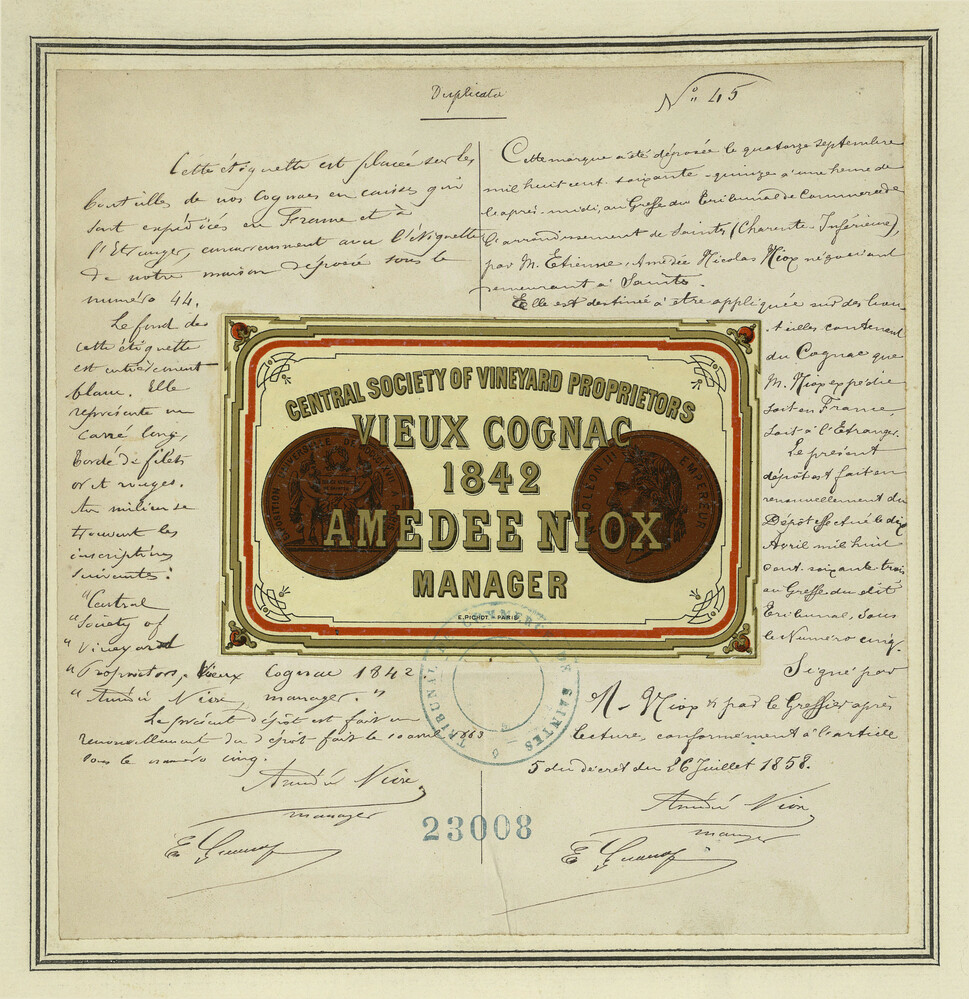 Duplicata
N° 45
Cette étiquette est placée sur les
bouteilles de nos cognacs en caisses qui
sont expédiées en France et à
l'Etranger, concurremment avec l'étiquette
de notre maison déposée sous le
numéro 44.
Le fond de
cette étiquette
est entièrement
blanc. Elle
représente un
carré long,
bordé de filets
or et rouges.
Au milieu se
trouvent les
inscriptions
suivantes:
"Central
"Society of
"Vineyard
"Proprietors. Vieux Cognac 1842.
"Amédée Niox manager."
Le présent dépôt est fait en
renouvellement du dépôt fait le 10 avril 1863
sous le numéro cinq.
Amédée Niox
manager
Cette marque a été déposée le quatorze septembre
mil huit cent soixante-quinze à une heure de
l'après-midi, au Greffe du Tribunal de Commerce de
l'arrondissement de Saintes (Charente-Inférieure),
par M. Etienne Amédée Nicolas Niox négociant
demeurant à Saintes.
Elle est destinée à être appliquée sur des bou-
teilles contenant
du Cognac que
M. Niox expédie
soit en France,
soit à l'Etranger.
Le présent
dépôt est fait en
renouvellement du
Dépôt effectué le dix
Avril mil huit
cent soixante trois
au Greffe du dit
Tribunal, sous
le Numéro cinq.
Signé par
M. Niox & par le Greffier après
lecture, conformément à l'article
5 du décret du 26 Juillet 1858.
Amédée Niox
manager
CENTRAL SOCIETY OF VINEYARD PROPRIETORS
VIEUX COGNAC
1842
AMEDEE NIOX
MANAGER
E. PICHOT - PARIS
EMPEREUR
TRIBUNAL DE COMMERCE DE SAINTES
23008